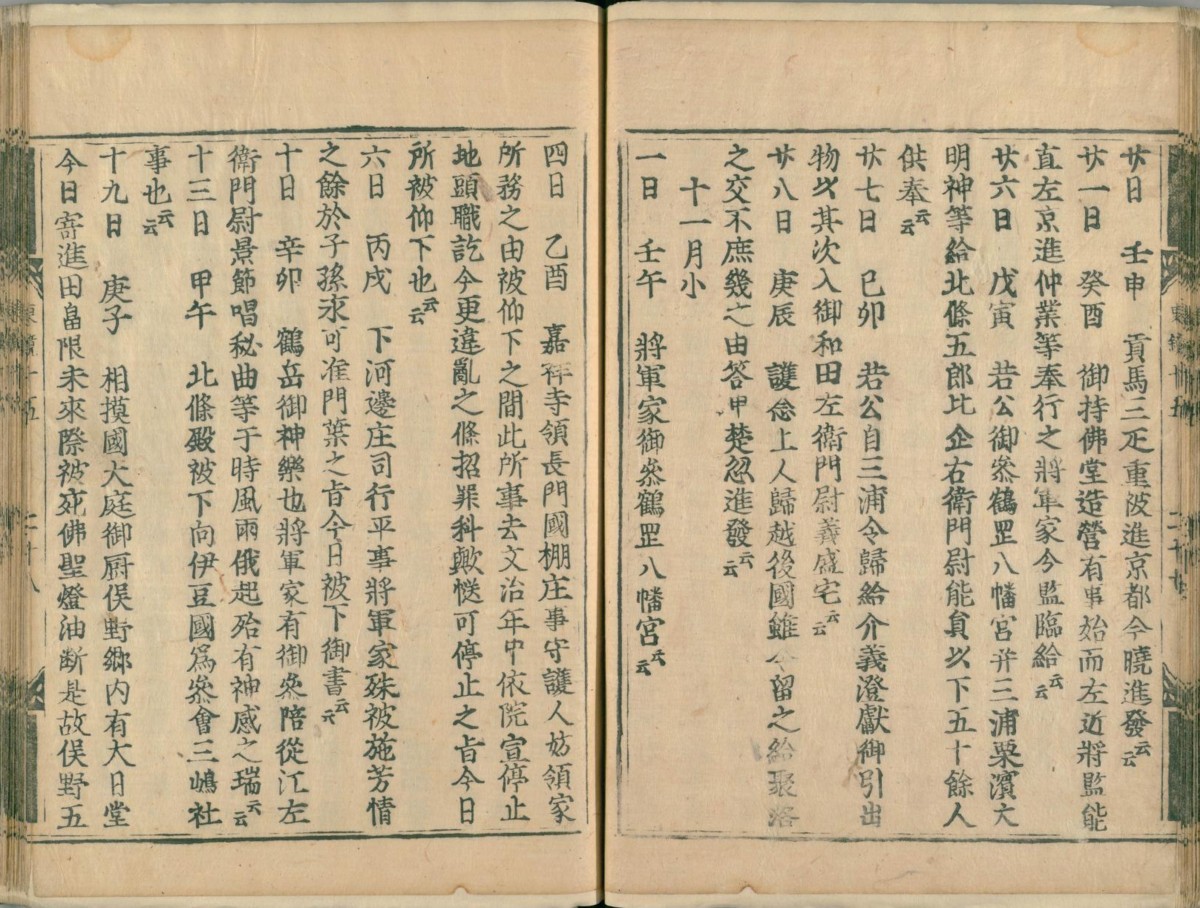 廿日　壬申　貢馬三疋重被進京都今曉進發云云
廿一日　癸酉　御持佛堂造營有事始而左近將監能
直左京進仲業等奉行之將軍家令監臨給云云
廿六日　戊寅　若公御參鶴罡八幡宮并三浦栗濱大
明神等給北條五郎比企右衛門尉能員以下五十餘人
供奉云云
廿七日　己卯　若公自三浦令歸給介義澄獻御引出
物以其次入御和田左衛門尉義盛宅云云
廿八日　庚辰　護念上人歸越後國雖令留之給聚落
之交不庶幾之由答申楚忽進發云云
十一月小
一日　壬午　將軍家御參鶴罡八幡宮云云
四日　乙酉　嘉祥寺領長門國棚庄事守護人妨領家
所務之由被仰下之間此所事去文治年中依院宣停止
地頭職訖今更違亂之條招罪科歟慥可停止之旨今日
所被仰下也云云
六日　丙戌　下河邊庄司行平事將軍家殊被施芳情
之餘於子孫永可准門葉之旨今日被下御書云云
十日　辛卯　鶴岳御神樂也將軍家有御參陪從江左
衛門尉景節唱秘曲等于時風雨俄起殆有神感之瑞云云
十三日　甲午　北條殿被下向伊豆國爲參會三嶋社
事也云云
十九日　庚子　相摸國大庭御厨俣野郷内有大日堂
今日寄進田畠限未來際被宛佛聖燈油断是故俣野五
東鑑十五
二十八